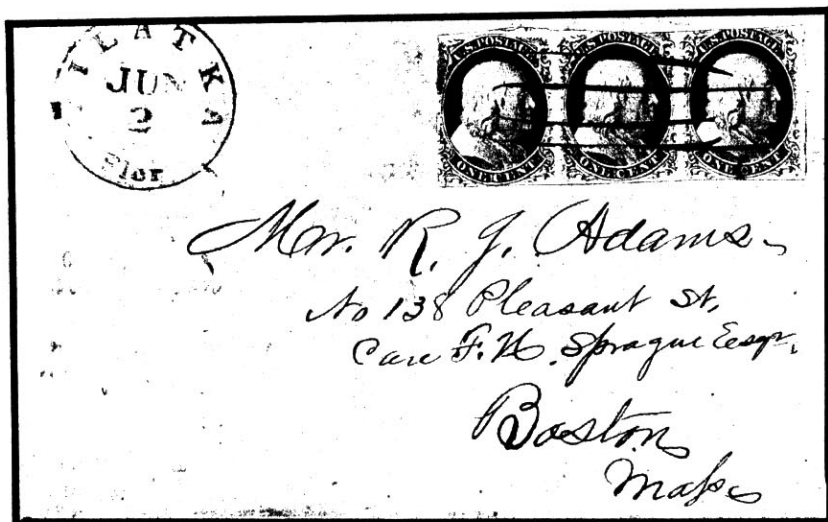 PILATKA
JUN
2
Flor
U.S. POSTAGE U.S. POSTAGE U.S. POSTAGE
ONE CENT. ONE CENT. ONE CENT.
Mr. R. J. Adams
No 138 Pleasant St,
Care F. H. Sprague Esqr,
Boston
Mass